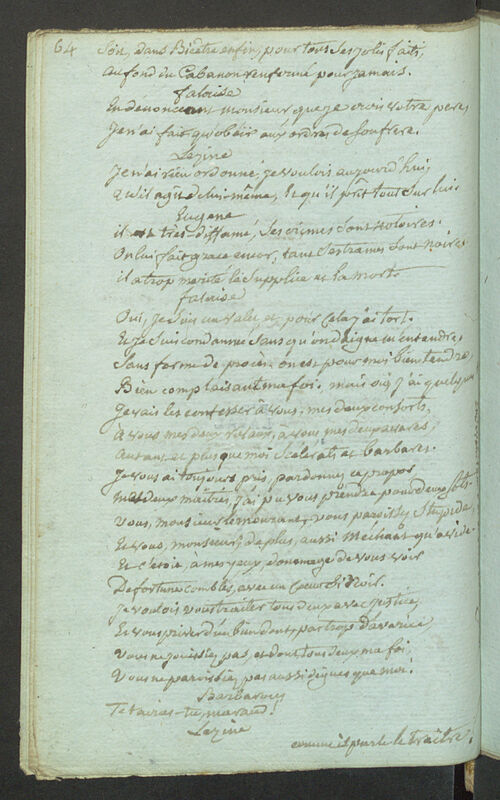 64
Soit, dans Bicêtre enfin, pour tous ses jolis faits,
au fond du Cabanon renfermé pour jamais.
falaise
En dénonçant monsieur que je crois votre père,
Je n'ai fait qu'obéir aux ordres de son frère.
Lezine
Je n'ai rien ordonné, je voulois aujourd'hui
qu'il agît de lui-même, et qu'il prît tout sur lui.
Eugene
il est très-diffamé, ses crimes sont notoires.
On lui fait grace encor, tant ses trames sont noires
il a trop merité le supplice et la mort
falaise
Oui, je suis un valet, et pour cela j'ai tort.
Et je suis condamné sans qu'on daigne m'entendre,
Sans forme de procès. on est pour moi bien tendre
Bien complaisant ma foi. mais si j'ai quelques
Je vais les confesser à vous, mes deux consorts,
à vous mes deux rivaux, à vous mes deux avares,
Autant, et plus que moi scélérats et barbares.
Je vous ai toujours pris, pardonnez ce propos
mes deux maîtres, j'ai pu vous prendre pour deux sots.
Vous, monsieur vous paroissez stupide,
Et vous, monsieur, de plus, aussi méchant qu'avide.
Et c'étoit, à mes yeux, dommage de vous voir
De fortune comblés, avec un cœur si noir.
Je voulois vous traiter tous deux avec justice,
Et vous priver d'un bien dont, par trop d'avarice,
Vous ne jouissiez pas, et dont tous deux ma foi,
Vous ne paroissiez pas aussi dignes que moi.
Te tairas-tu, maraud!
Lezine
comme il parle le traître.